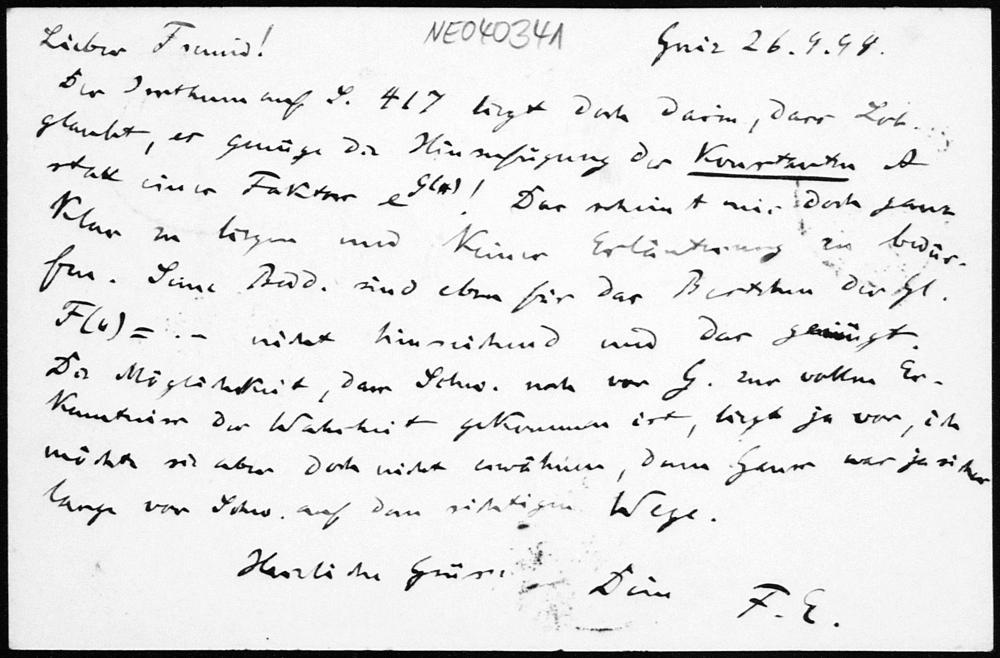 NE040341
Lieber Freund! Greiz 26.9.98.
Der Irrthum auf S. 417 liegt doch darin, dass Lob.
glaubt, es genüge die Hinzufügung der Konstanten A
statt eines Faktors e^G(u)! Das scheint mir doch ganz
klar zu liegen und keiner Erläuterung zu bedür-
fen. Seine Bedd. sind eben für das Bestehen der Gl.
F(u) = .- nicht hinreichend und das genügt.
Die Möglichkeit, dass Schw. noch vor G. zur vollen Er-
kenntniss der Wahrheit gekommen ist, liegt ja vor, ich
möchte sie aber doch nicht erwähnen, denn Gauss war ja sicher
lange vor Schw. auf dem richtigen Wege.
Herzliche Grüsse Dein F. E.